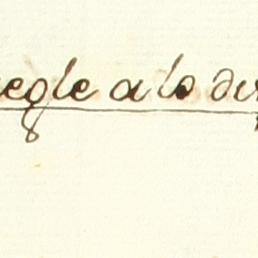 regle a lo dis